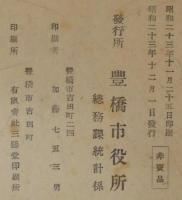 昭和二十三年十一月二十五日印刷
昭和二十三年十二月一日發行
非賣品
發行所
豐橋市役所
總務課統計係
豐橋市吉田町二四
印刷者
加藤七五三男
豐橋市吉田町
印刷所
有限會社三陽堂印刷所